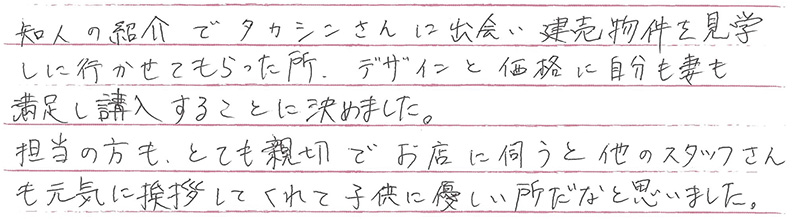 知人の紹介でタカシンさんに出会い建売物件を見学
しに行かせてもらった所、デザインと価格に自分も妻も
満足し講入することに決めました。
担当の方も、とても親切でお店に伺うと他のスタッフさん
も元気に挨拶してくれて子供に優しい所だなと思いました。